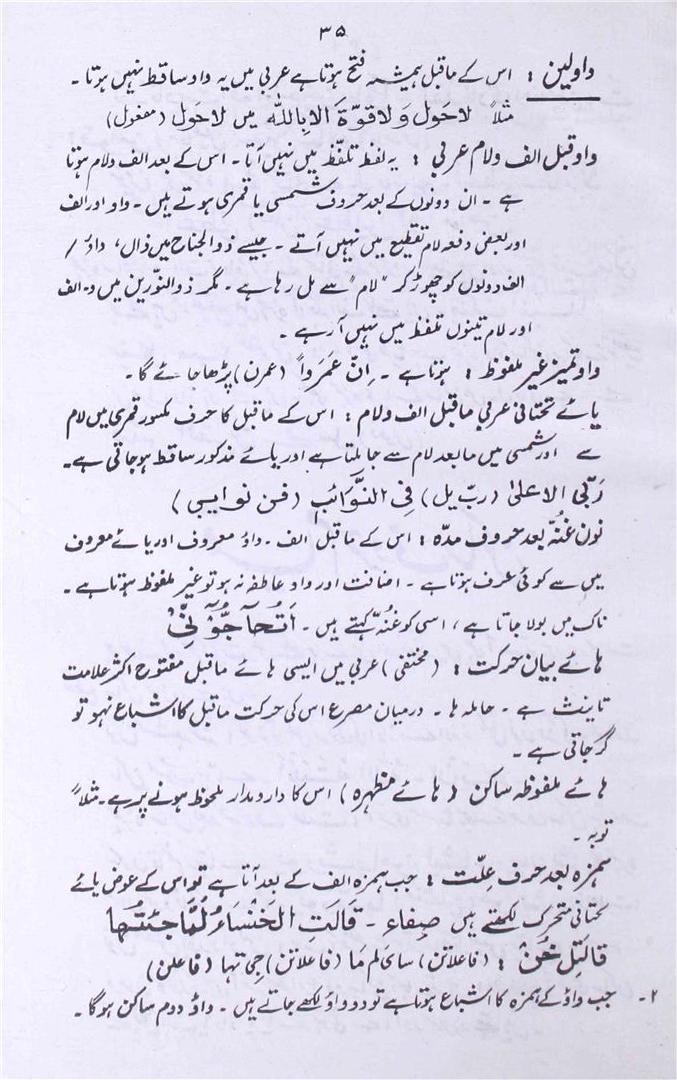 ۳۵
واولین : اس کے ماقبل ہمیشہ فتح ہوتا ہے عربی میں یہ واو ساقط نہیں ہوتا ۔
مثلاً لاحول ولاقوّۃ الا باللہ میں لاحَول (مفعول)
واو قبل الف ولام عربی : یہ لفظ تلفّظ میں نہیں آتا ۔ اس کے بعد الف ولام ہوتا
ہے ۔ ان دونوں کے بعد حروف شمسی یا قمری ہوتے ہیں ۔ واو اور الف
اور بعض دفعہ لام تقطیع میں نہیں آتے ۔ جیسے ذوالجناح میں ذال، واؤ /
الف دونوں کو چھوڑ کر "لام" سے مل رہا ہے ۔ مگر ذوالنّورین میں و ۔ الف
اور لام تینوں تلفظ میں نہیں آرہے ۔
واو تمیز غیر ملفوظ : ہوتا ہے ۔ اِنّ عَمَرواً (عمرن) پڑھا جائے گا ۔
یائے تحتانی عربی ماقبل الف ولام : اس کے ماقبل کا حرف مکسور قمری میں لام
سے اور شمسی میں مابعد لام سے جا ملتا ہے اور یائے مذکور ساقط ہوجاتی ہے ۔
رَبّی الاعلیٰ (ربّ یل) فِی النَّوَائبِ (فن نوایبی)
نون غنّہ بعد حروف مدّہ : اس کے ماقبل الف ۔ واؤ معروف اور یائے معروف
میں سے کوئی حرف ہوتا ہے ۔ اضافت اور واو عاطفہ نہ ہو تو غیر ملفوظ ہوتا ہے ۔
ناک میں بولا جاتا ہے ، اسی کو غنّہ کہتے ہیں ۔ اَتُحَآجُّوٓنِّیْ
ہائے بیان حرکت : (مختفی) عربی میں ایسی ہائے ماقبل مفتوح اکثر علامت
تانیث ہے ۔ حاملہ ہا ۔ درمیان مصرع اس کی حرکت ماقبل کا اشباع نہو تو
گر جاتی ہے ۔
ہائے ملفوظہ ساکن (ہائے مظہرہ) اس کا دار و مدار ملحوظ ہونے پر ہے ۔ مثلاً
توبہ ۔
ہمزہ بعد حرف علّت : جب ہمزہ الف کے بعد آتا ہے تو اس کے عوض یائے
تحتانی متحرک لکھتے ہیں صِفاء ۔ قَالَتِ الخَنْسَاءُ لَمَّا جِئتُہا
قالتِل خَنْ : (فاعلاتن) سای لم مَا (فاعلاتن) جِی تہا (فاعلن)
۲ ۔ جب واؤ کے ہمزہ کا اشباع ہوتا ہے تو دو واؤ لکھے جاتے ہیں ۔ واؤ دوم ساکن ہوگا ۔